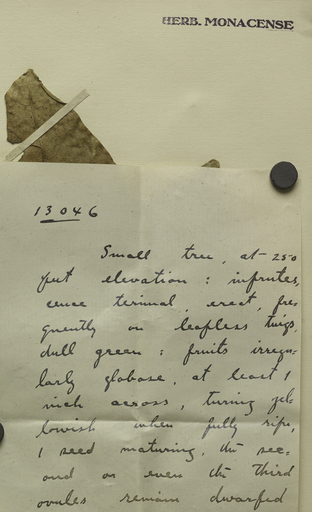 HERB. MONACENSE
13046
Small tree, at 250
feet elevation: infrutes,
cence terminal, erect, fre
quently on leafless twigs,
dull green: fruits irregu-
larly globose, at least 1
inch across, turning yel-
lowish when fully ripe,
1 seed maturing, the sec-
ond or even the third
ovules remain dwarfed